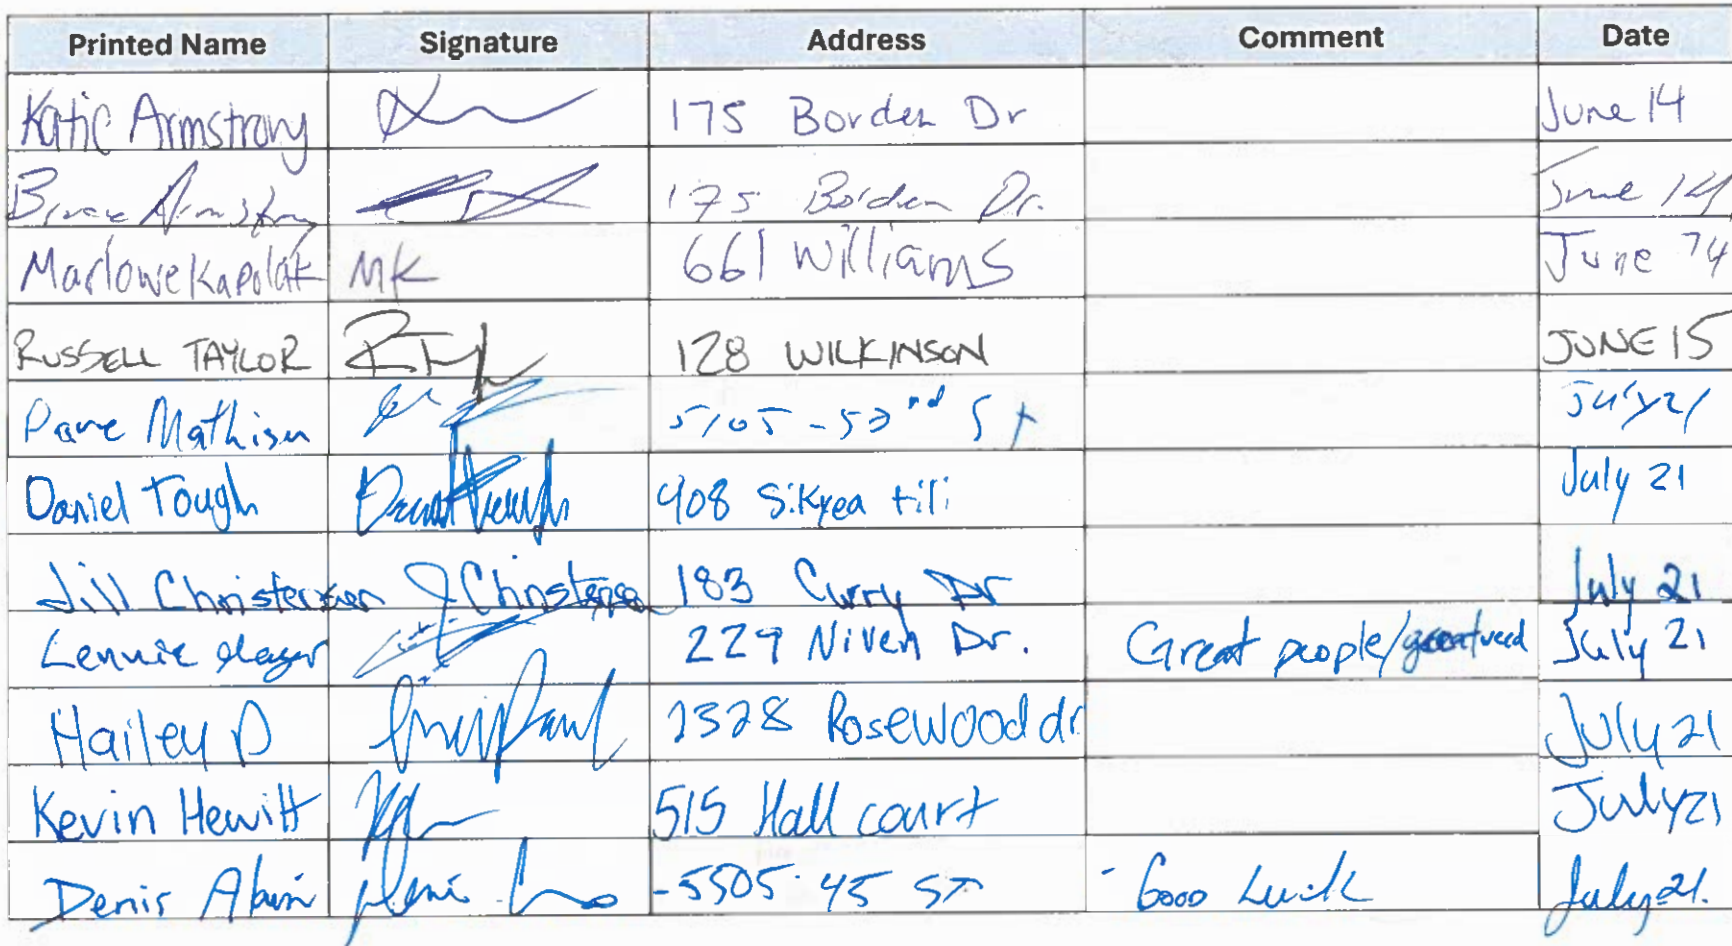 Printed Name Signature Address Comment Date
Katie Armstrong 175 Borden Dr June 14
Bruce Armstrong 175 Borden Dr. June 14
Marlowe Kapolak MK 661 Williams June 14
RUSSELL TAYLOR 128 WILKINSON JUNE 15
Dave Mathisen 5105-52nd St July 21
Daniel Tough Daniel Tough 408 Sikyea tili July 21
Jill Christensen J Christensen 183 Curry Dr July 21
Lennie 229 Niven Dr. Great people/great weed July 21
Hailey P 2328 Rosewood dr July 21
Kevin Hewitt 515 Hall court July 21
Denis 5505-45 ST - Good Luck July 21.